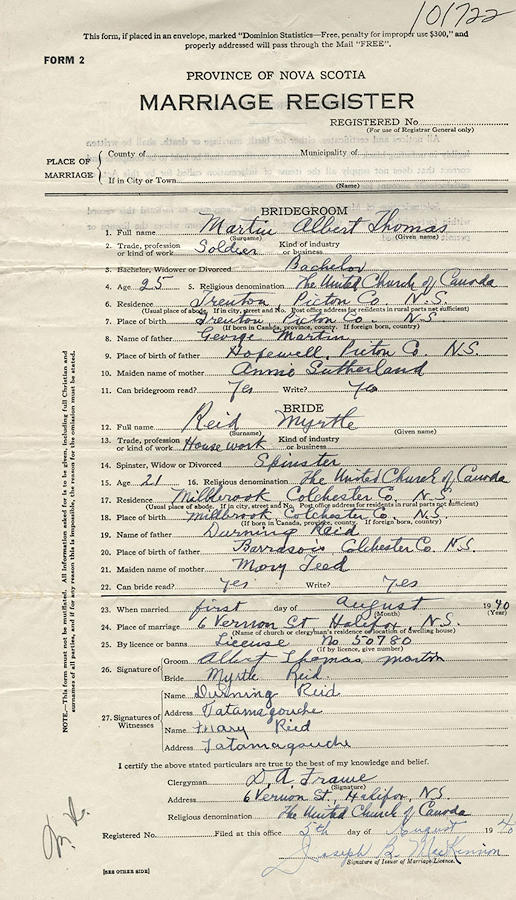 101722
This form, if placed in an envelope, marked "Dominion Statistics—Free, penalty for improper use $300," and
properly addressed will pass through the Mail "FREE".
FORM 2
PROVINCE OF NOVA SCOTIA
MARRIAGE REGISTER
REGISTERED No.
(For use of Registrar General only)
PLACE OF MARRIAGE
County of Municipality of
If in City or Town
(Name)
BRIDEGROOM
1. Full name Martin Albert Thomas
(Surname) (Given name)
2. Trade, profession or kind of work Soldier Kind of industry or business
3. Bachelor, Widower or Divorced Bachelor
4. Age 25 5. Religious denomination The United Church of Canada
6. Residence Trenton, Picton Co. N.S.
(Usual place of abode. If in city, street and No. Post office address for residents in rural parts not sufficient)
7. Place of birth Trenton, Picton Co. N.S.
(If born in Canada, province, county. If foreign born, country)
8. Name of father George Martin
9. Place of birth of father Hopewell, Picton Co. N.S.
10. Maiden name of mother Annie Sutherland
11. Can bridegroom read? Yes Write? Yes
BRIDE
12. Full name Reid Myrtle
(Surname) (Given name)
13. Trade, profession or kind of work House work Kind of industry or business
14. Spinster, Widow or Divorced Spinster
15. Age 21 16. Religious denomination The United Church of Canada
17. Residence Millbrook Colchester Co. N.S.
(Usual place of abode. If in city, street and No. Post office address for residents in rural parts not sufficient)
18. Place of birth Millbrook Colchester Co. N.S.
(If born in Canada, province, county. If foreign born, country)
19. Name of father Durning Reid
20. Place of birth of father Colchester Co. N.S.
21. Maiden name of mother Mary Teed
22. Can bride read? Yes Write? Yes
23. When married first day of August 1940
(Month) (Year)
24. Place of marriage 6 Vernon St Halifax, N.S.
(Name of church or clergyman's residence or location of dwelling house)
25. By licence or banns License No 50780
(If by licence, give number)
26. Signature of
Groom Albert Thomas Martin
Bride Myrtle Reid.
27. Signatures of Witnesses
Name Durning Reid
Address Tatamagouche
Name Mary Reid
Address Tatamagouche
I certify the above stated particulars are true to the best of my knowledge and belief.
Clergyman D. A. Frame
(Signature)
Address 6 Vernon St., Halifax, N.S.
Religious denomination The United Church of Canada
Registered No. Filed at this office 5th day of August 1940
Joseph B. MacKinnon
Signature of Issuer of Marriage Licence.
[SEE OTHER SIDE]
NOTE.—This form must not be mutilated. All information asked for is to be given, including full Christian and
surnames of all parties, and if for any reason this is impossible, the reason for the omission must be stated.